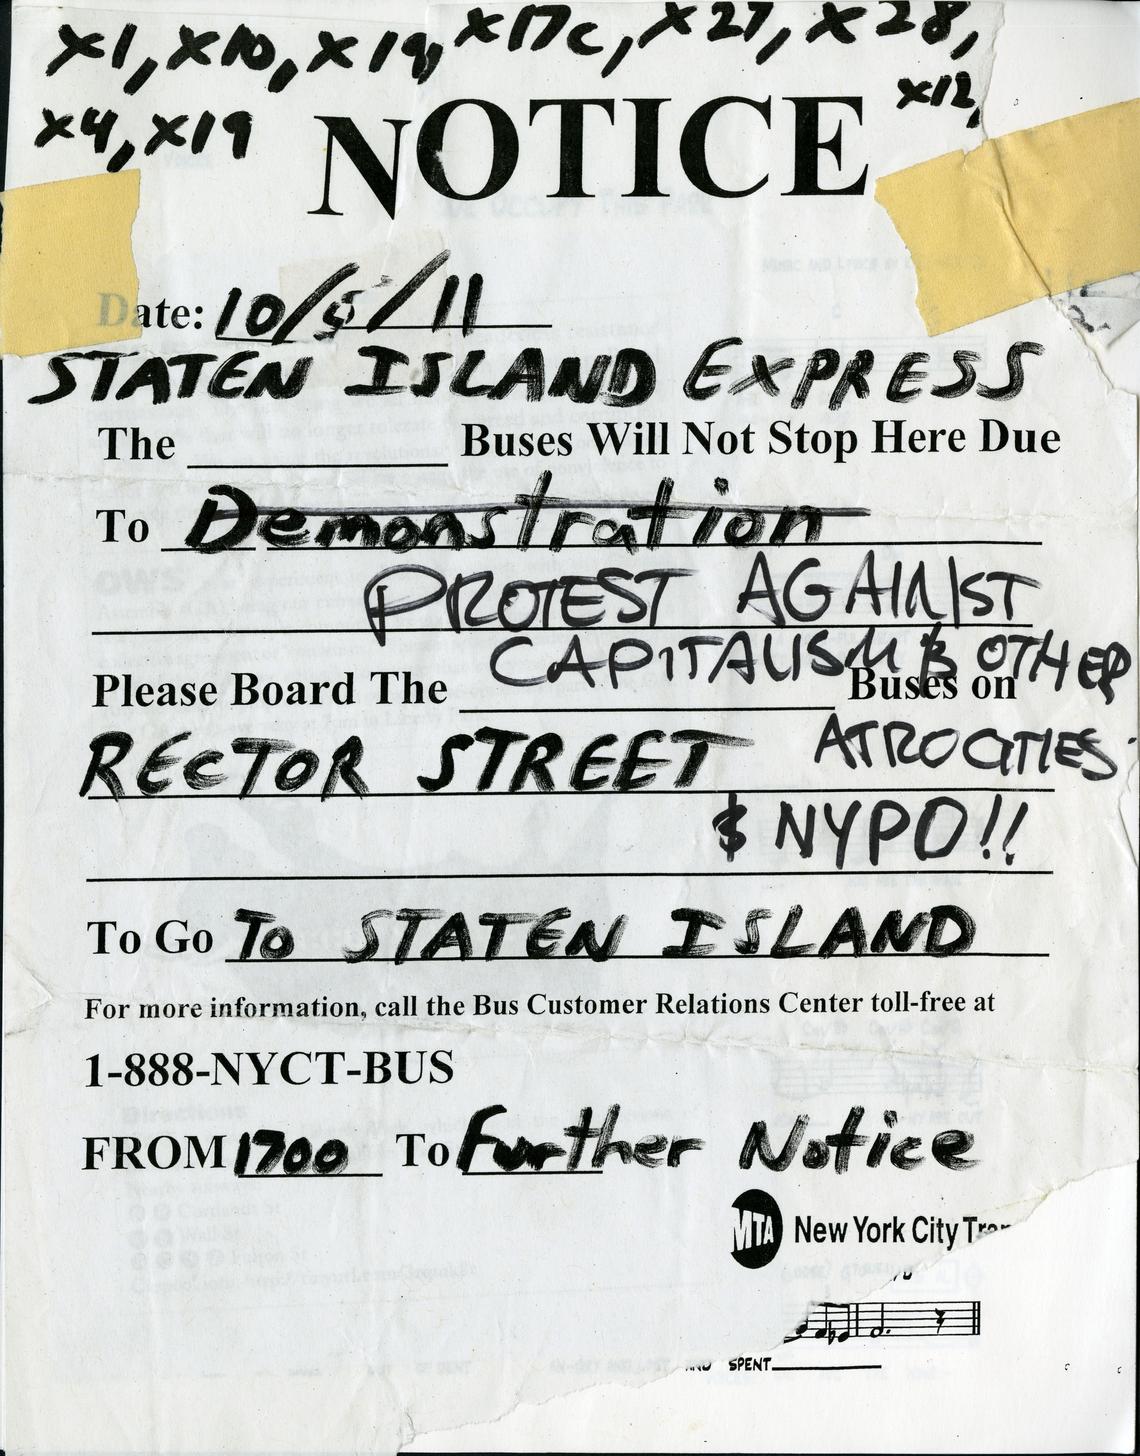 X1, X10, X19, X17c, X27, X28,
X4, X19
X12,
NOTICE
Date: 10/5/11
STATEN ISLAND EXPRESS
The ____________ Buses Will Not Stop Here Due
To Demonstration
PROTEST AGAINST
CAPITALISM & OTHER
Please Board The ____________ Buses on
ATROCITIES
RECTOR STREET
& NYPD!!
To Go To STATEN ISLAND
For more information, call the Bus Customer Relations Center toll-free at
1-888-NYCT-BUS
FROM 1700 To Further Notice
MTA New York City
SPENT